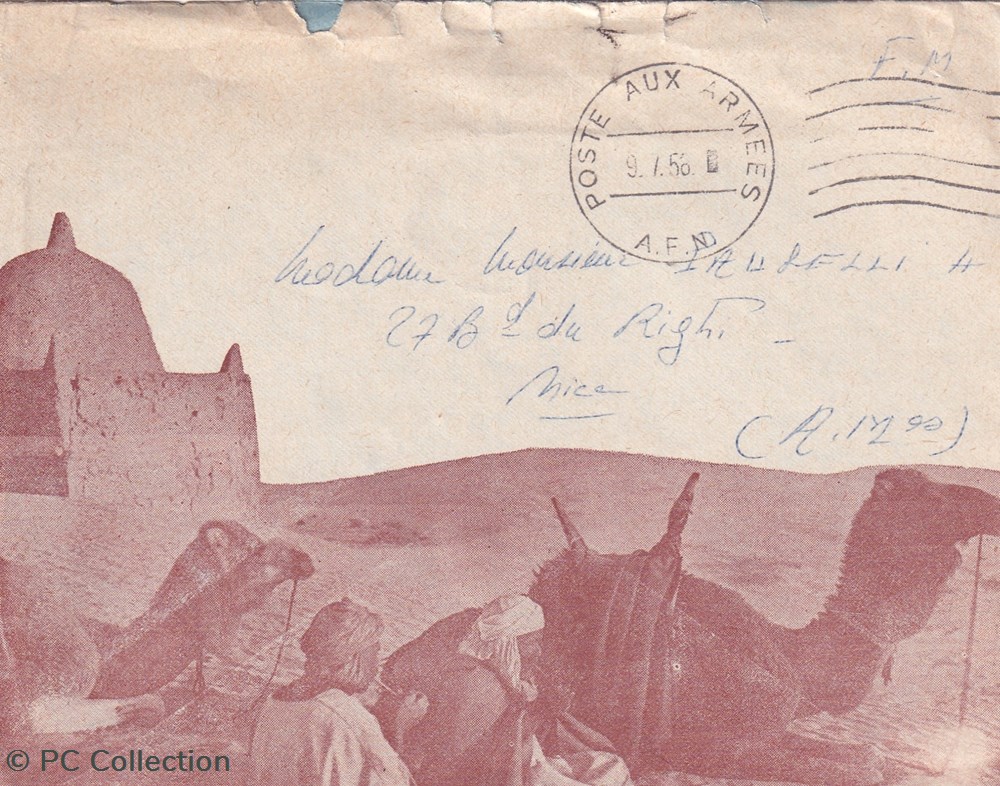 F.M
POSTE AUX ARMEES
9.7.56.
A.F.N
Madame Monsieur IAUSELLI H
27 Bd du Righi -
Nice
(A.Mes)
© PC Collection